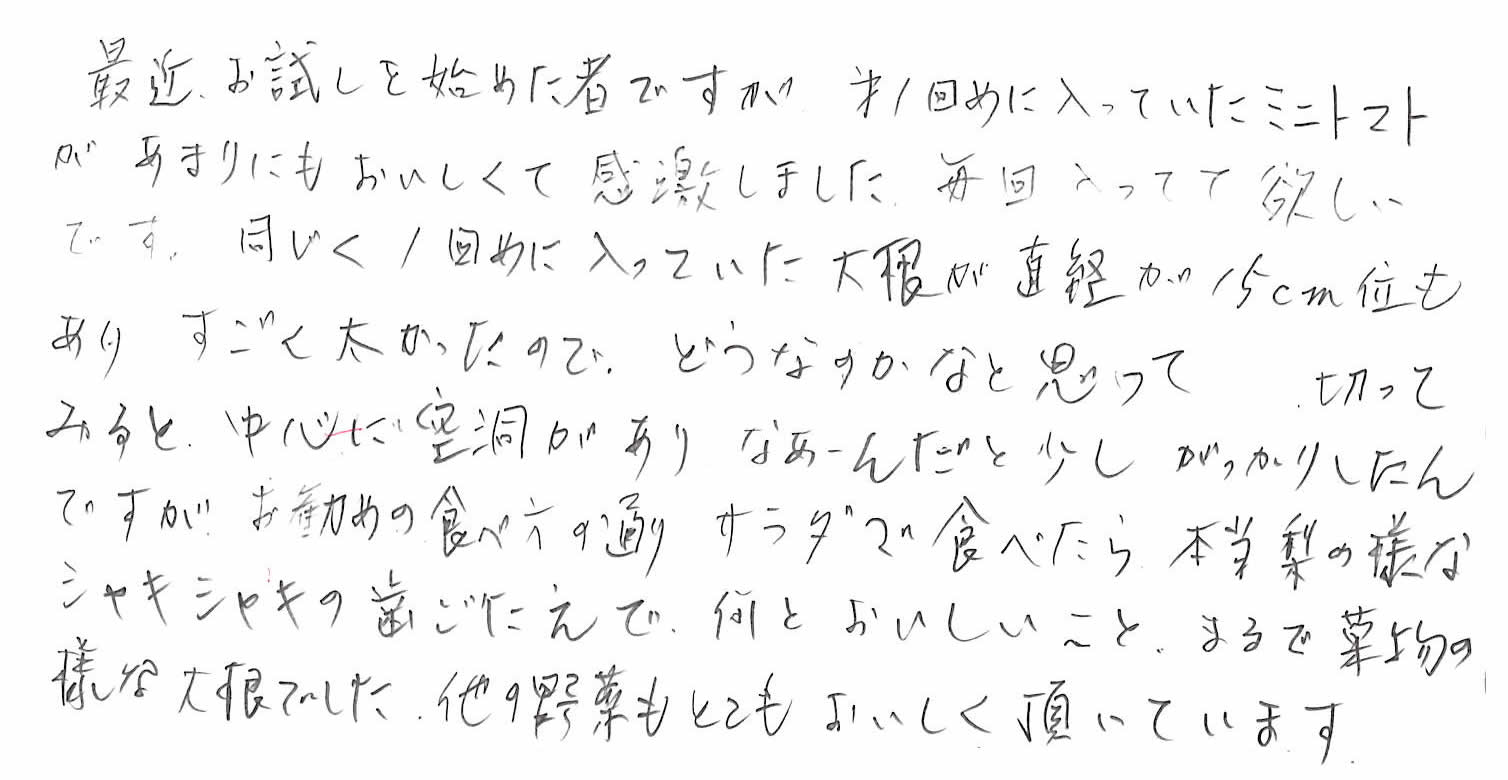 最近、お試しを始めた者ですが、才1回めに入っていたミニトマト
があまりにもおいしくて感激しました。毎回入ってて欲しい
です。同じく1回めに入っていた大根が直経が15cm位も
あり すごく太かったので、どうなのかなと思って 切って
みると、中心に空洞があり なあーんだと少しがっかりしたん
ですが、お勧めの食べ方の通り サラダで食べたら、本当梨の様な
シャキシャキの歯ごたえで、何とおいしいこと、まるで菓物の
様な大根でした。他の野菜もとてもおいしく頂いています。